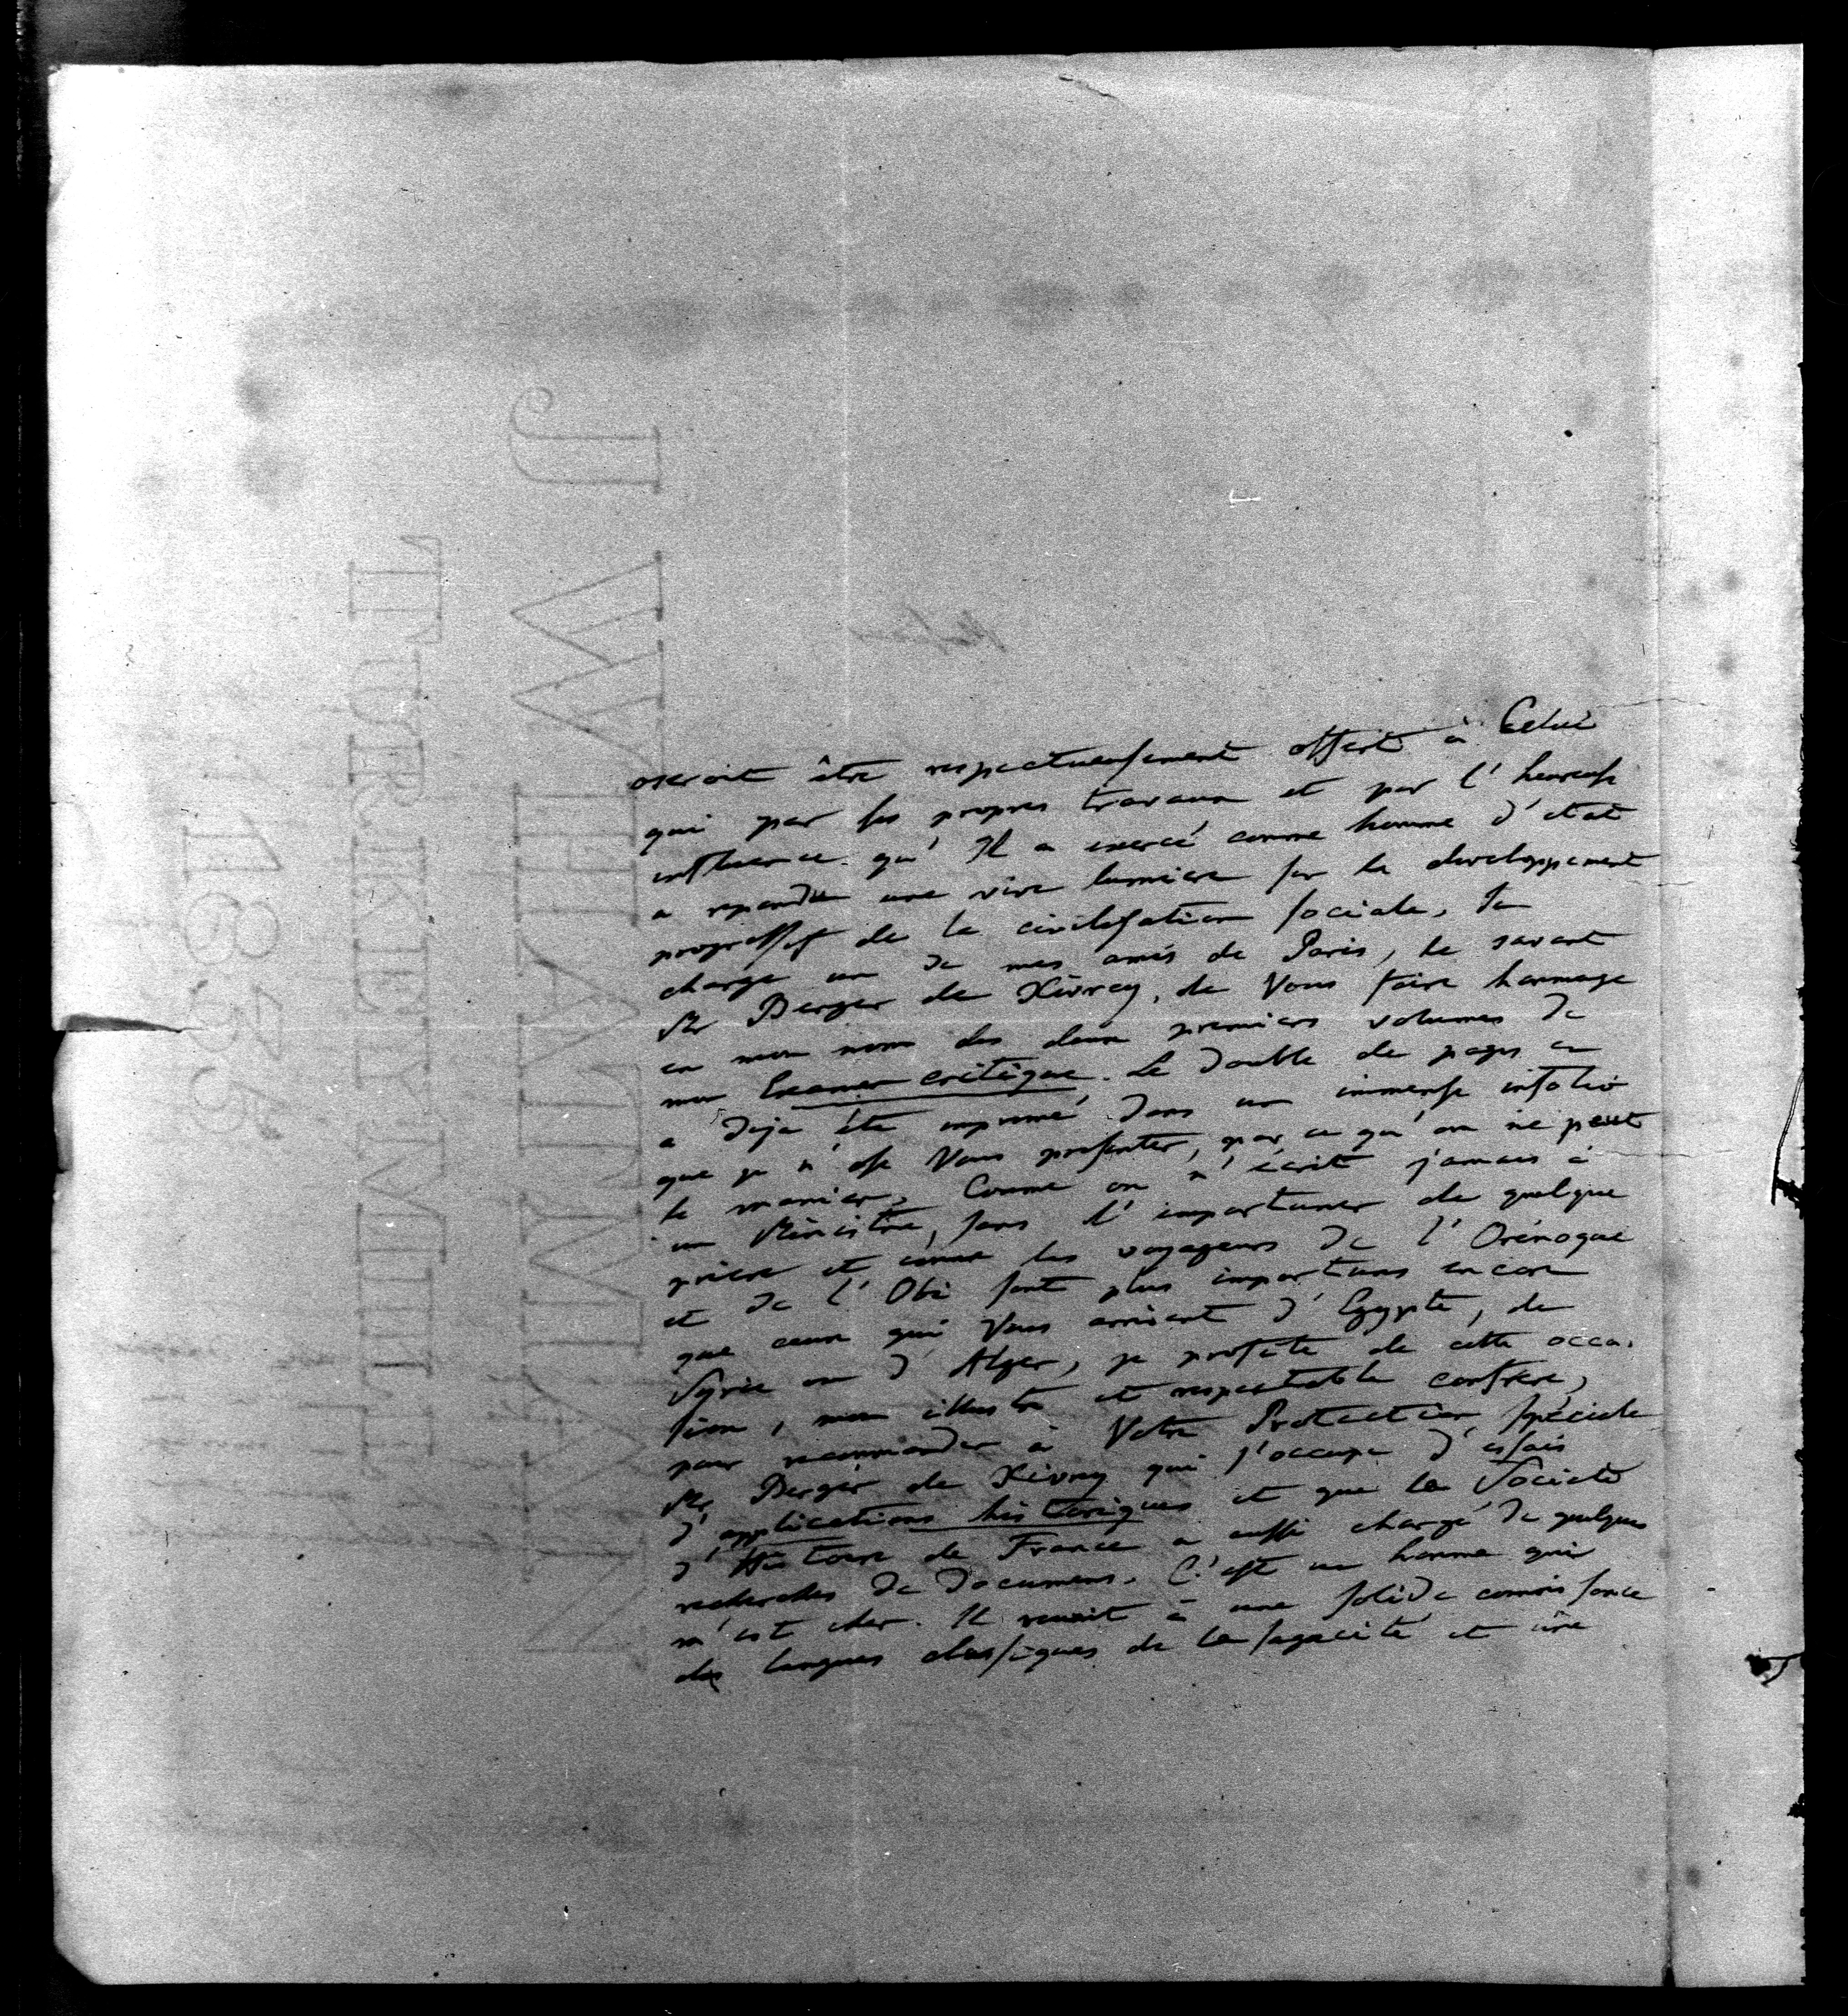 oseroit être respectueusement offert à Celui
qui par ses propres travaux et par l'heureuse
influence qu'Il a exercé comme homme d'état
a repandu une vive lumiere sur le developpement
progressif de la civilisation sociale. Je
charge un de mes amis de Paris, le savant
Mr Berger de Xivrey, de Vous faire hommage
en mon nom des deux premiers volumes de
mon Examen critique. Le double de pages en
a deja été imprimé dans un immense infolio
que je n'ose Vous presenter, par ce qu'on ne peut
le manier. Comme on n'écrit jamais à
un Ministre, sans l'importuner de quelque
priere et comme les voyageurs de l'Orénoque
et de l'Obi sont plus importuns encore
que ceux qui Vous arrivent d'Egypte, de
Syrie ou d'Alger, je profite de cette occa-
sion, mon illustre et respectable confrere,
pour recommander à Votre Protection spéciale
Mr Berger de Xivrey qui s'occupe d'essais
d'applications historiques et que la Societé
d'Histoire de France a aussi chargé de quelques
recherches de documens. C'est un homme qui
m'est cher. Il reunit à une solide connoissance
des langues classiques de la sagacité et une
J WHATMAN
TURKEY MILL
1835